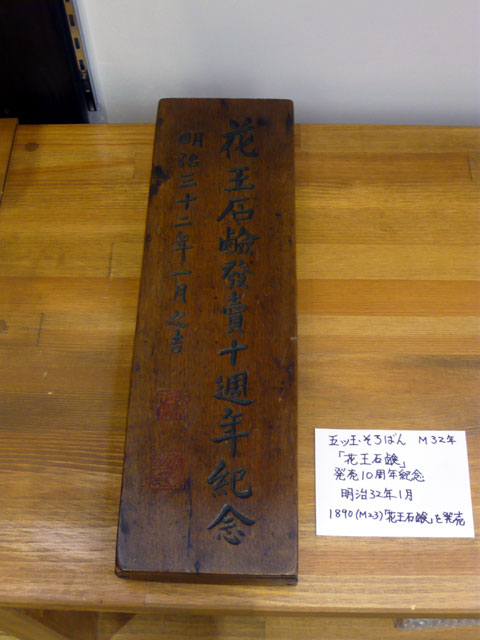 花王石鹼發賣十週年紀念
明治三十二年一月之吉
五ッ玉・そろばん M32年
「花王石鹸」
発売10周年紀念
明治32年1月
1890(M23)「花王石鹸」を発売